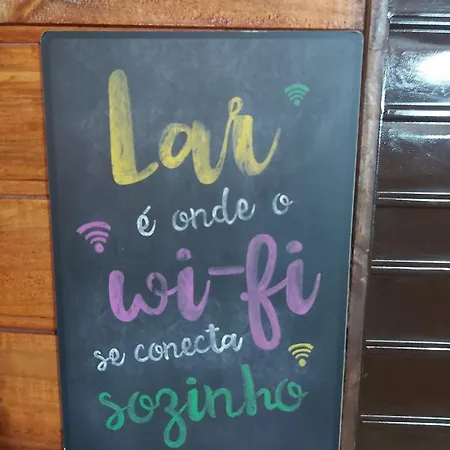 Lar
é onde o
wi-fi
se conecta
sozinho